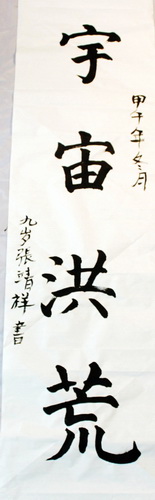 甲午年冬月
宇宙洪荒
九岁張靖祥書